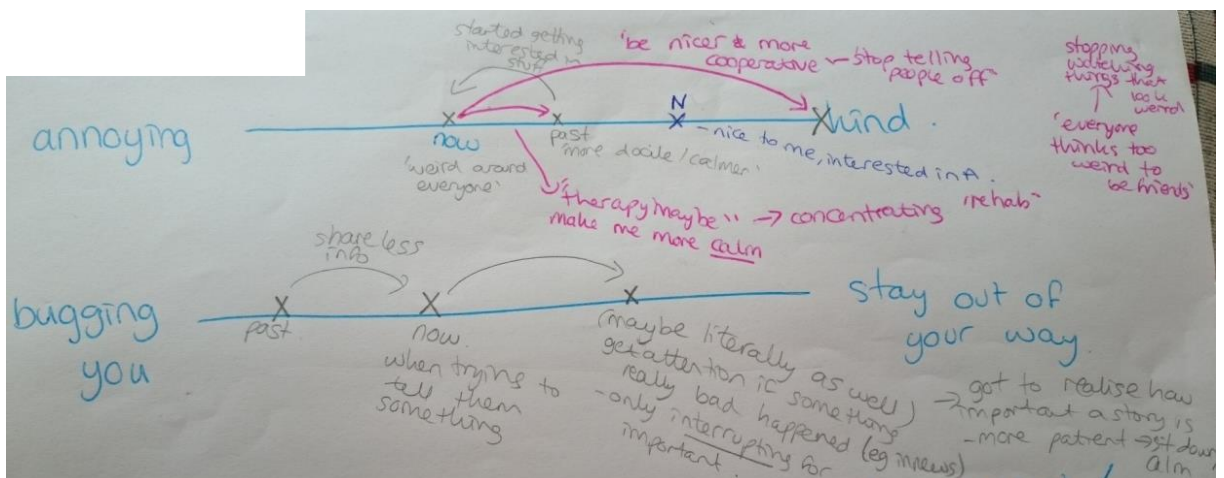 started getting
interested in
stuff
'be nicer & more
cooperative - stop telling
people off'
stopping
watching
things that
look
weird
'everyone
thinks too
weird to
be friends'
annoying
now
'weird around
everyone'
past
'more docile/calmer'
N
- nice to me, interested in A.
kind.
"therapy maybe" → concentrating 'rehab'
make me more calm
share less
info
bugging
you
past
now.
when trying to
tell them
something
(maybe literally as well)
get attention if something
really bad happened (eg in news)
- only interrupting for
important.
stay out of
your way
→ got to realise how
important a story is
- more patient → sit down
calm